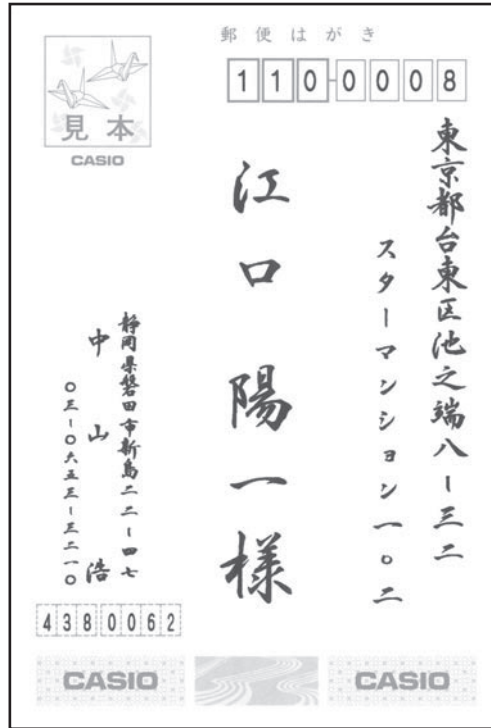 郵便はがき
110-0008
見本
CASIO
東京都台東区池之端八ー三二
スターマンション一〇二
江口陽一様
静岡県磐田市新島二二ー四七
中山浩
〇三ー〇六五三ー三二一〇
4380062
CASIO
CASIO